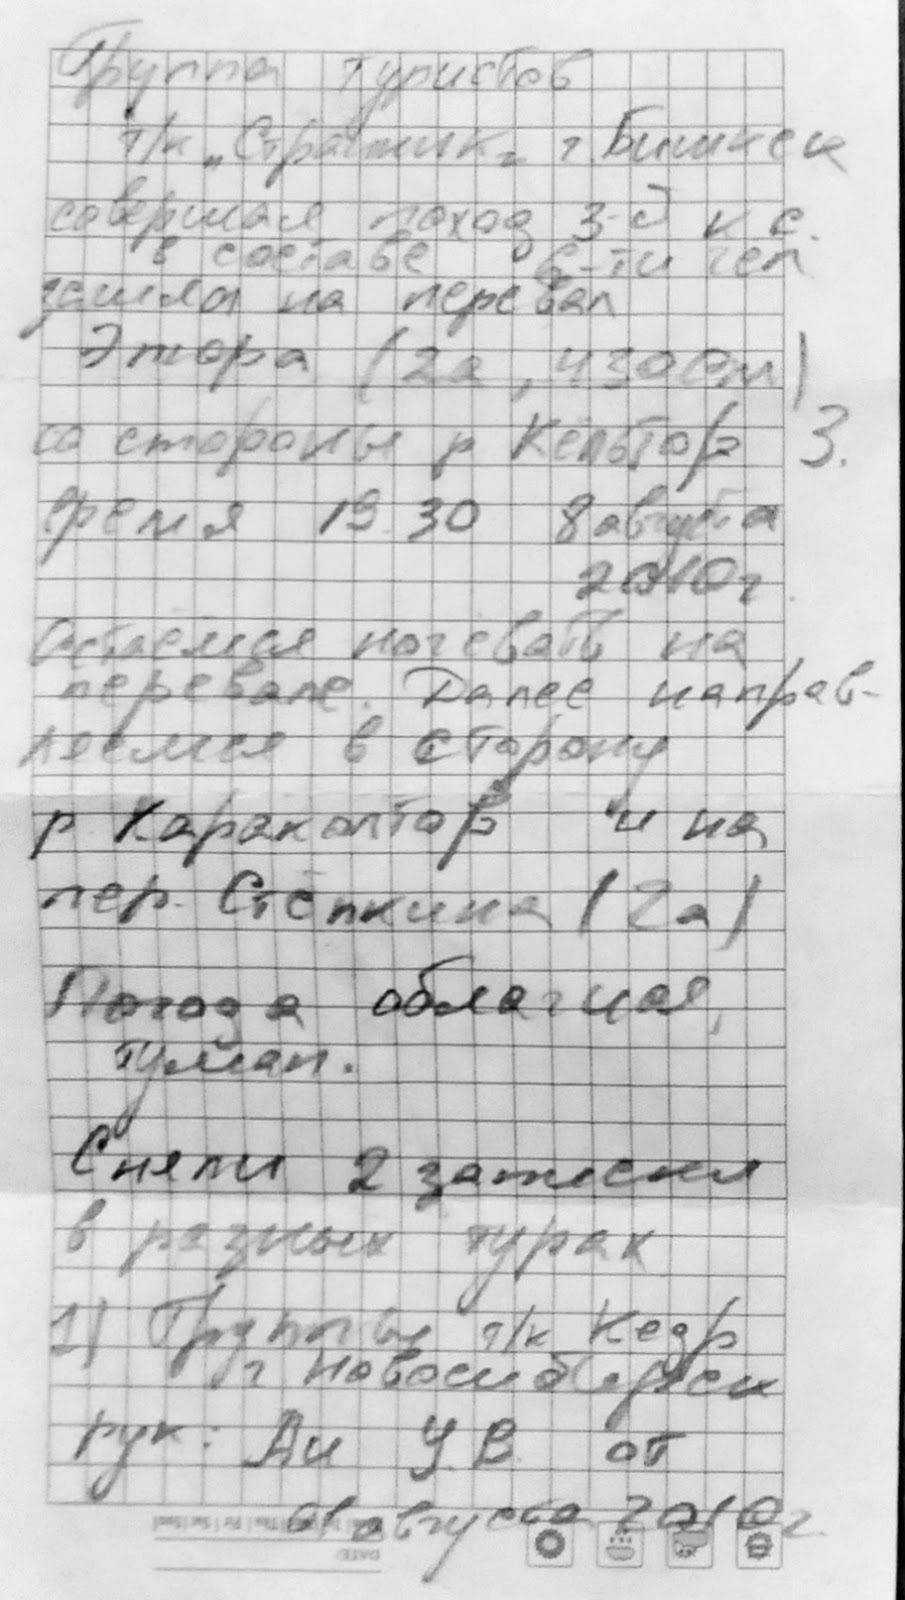 Группа туристов
т/к "Стражник" г. Бишкек
совершая поход 3-й к.с.
в составе 6-ти чел
зашла на перевал
Этора (2а, 4300м)
со стороны р Кёльтор З.
Время 19.30 8 августа
2010г.
Остаёмся ночевать на
перевале. Далее направ-
ляемся в сторону
р Караколтор и на
пер. Стёпкина (2а)
Погода облачная,
туман.
Сняли 2 записки
в разных турах
1) Группы т/к Кедр
г Новосибирск
рук: Аи У.В. от
01 августа 2010г
DATE